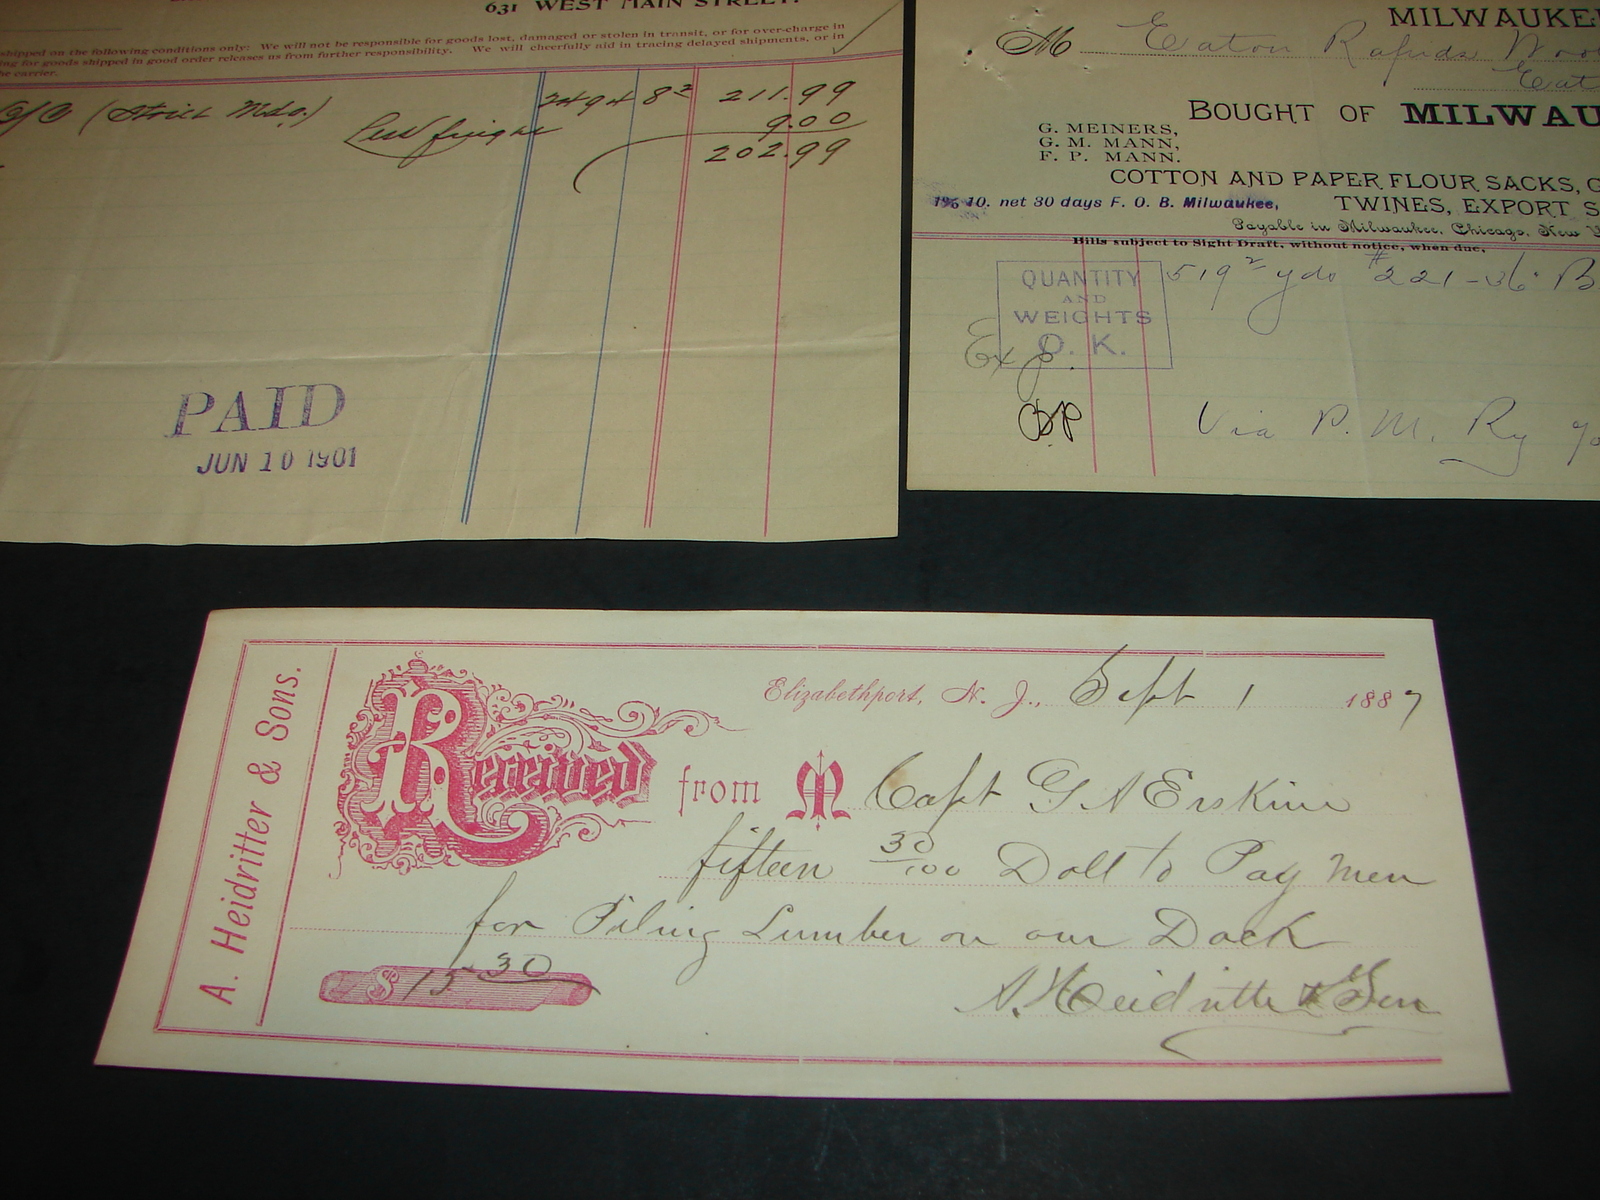 631 WEST MAIN STREET.
shipped on the following conditions only: We will not be responsible for goods lost, damaged or stolen in transit, or for over-charge in
ing for goods shipped in good order releases us from further responsibility. We will cheerfully aid in tracing delayed shipments, or in
he carrier.
2494 8½ 211.99
Less freight 9.00
202.99
PAID
JUN 10 1901
MILWAUKE
M Eaton Rapids Woo
Eat
BOUGHT OF MILWAU
G. MEINERS,
G. M. MANN,
F. P. MANN.
COTTON AND PAPER FLOUR SACKS, G
10. net 30 days F. O. B. Milwaukee,
TWINES, EXPORT S
Payable in Milwaukee, Chicago, New Y
Bills subject to Sight Draft, without notice, when due.
QUANTITY
AND
WEIGHTS
O. K.
519² yds #221-36" B
Via P. M. Ry
A. Heidritter & Sons.
Elizabethport, N. J., Sept 1 1887
Received from M Capt G A Erskine
fifteen 30/100 Doll to Pay men
for Piling Lumber on our Dock
$15 30
A. Heidritter & Son